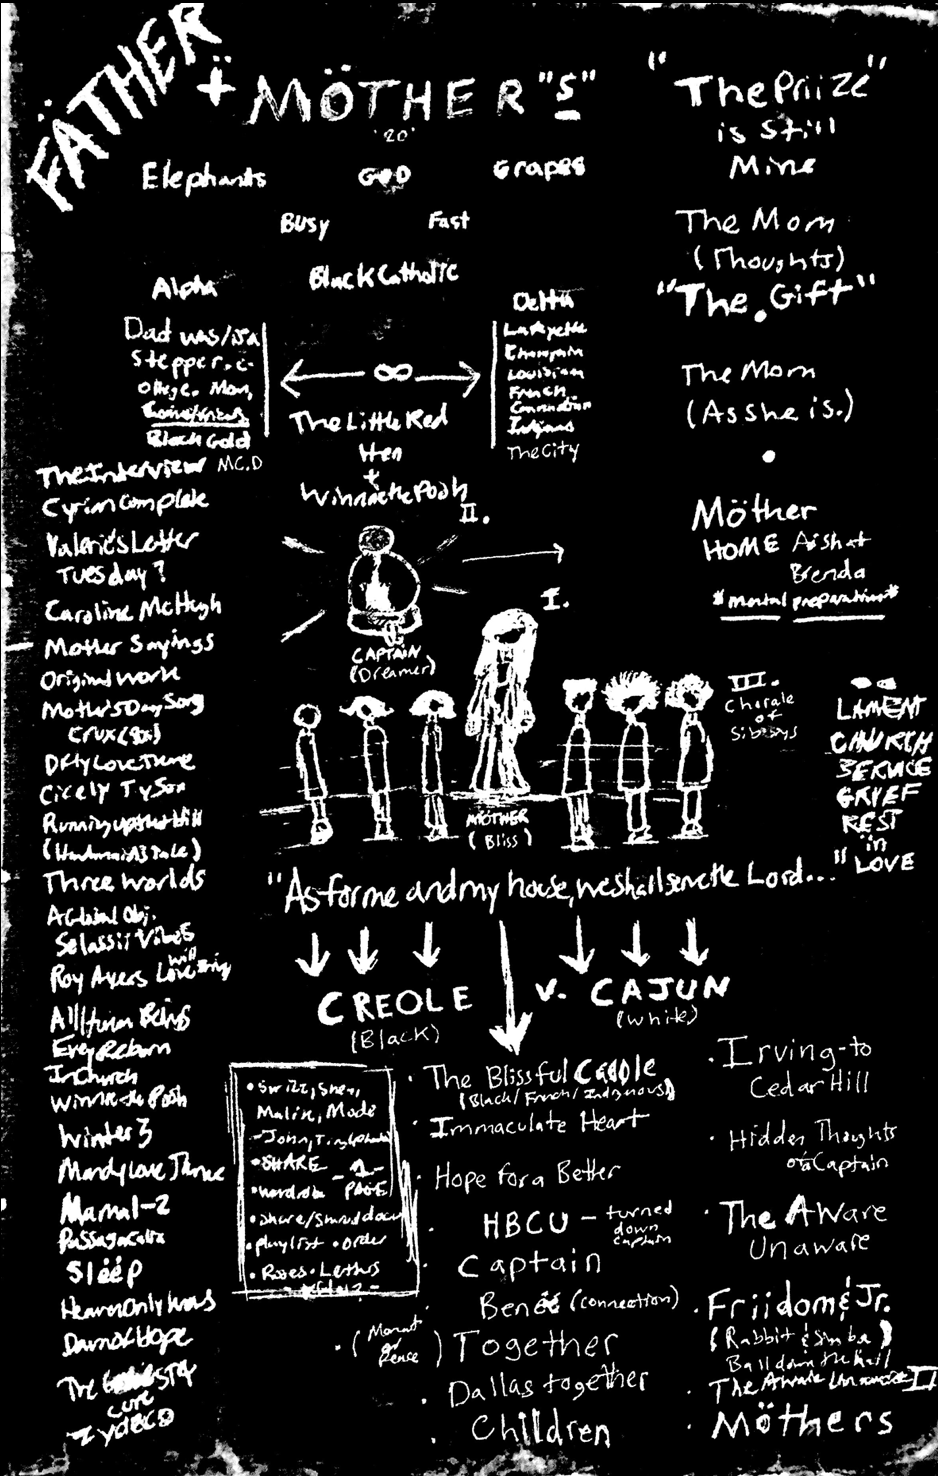 FÄTHER
+ MÖTHER "S"
'20'
Elephants GOD Grapes
Busy Fast
Black Catholic
"The Priize"
is still
Mine
The Mom
(Thoughts)
"The Gift"
The Mom
(As she is.)
Möther
HOME Aishat
Brenda
*mental preparation*
Alpha
Dad was/is a
Stepper.
College. Mom,
Black Gold
∞
The Little Red
Hen
+
Winnie the Pooh
Delta
Lafayette
Louisian
French
Indigous
The City
The Interview MC.D
Cyrian Complete
Valerie's Letter
Tuesday?
Caroline McHugh
Mother Sayings
Original Work
Mother's Day Song
Crux (9x)
D-Ply Love Theme
Cicely Tyson
Running up that Hill
(Handmaid's Tale)
Three Worlds
A Global Obj.
Selassii Vibes
Roy Ayers Love will bring
All Human Beings
Erey Reborn
In Church
Winnie the Pooh
Winter 3
Mandy Love Theme
Mamal-2
Passagacalia
Sleep
Heaven Only Knows
Dawn of Hope
The
cure
Zydeco
II.
CAPTAIN
(Dreamer)
I.
MÖTHER
(Bliss)
III.
Chorale
of
Sibbsys
LAMENT
CHURCH
SERVICE
GRIEF
REST
in
LOVE
"As for me and my house, we shall serve the Lord..."
CREOLE v. CAJUN
(Black) (White)
• Swizz, Shea,
Malik, Mode
- John,
• SHARE -1-
• wardrobe PAGE
• share/shared docu
• playlist • order
• Roses • Letters
• The Blissful Creole
(Black/French/Indigenous)
• Immaculate Heart
Hope for a Better
• HBCU - turned
down
Captain
• Captain
Beneé (connection)
• (Moment
of
Pense) Together
• Dallas together
• Children
• Irving-to
Cedar Hill
• Hidden Thoughts
of a Captain
• The Aware
Unaware
• Friidom & Jr.
(Rabbit & Simba)
Ball down the hall
• The Aware Unaware II
• Möthers